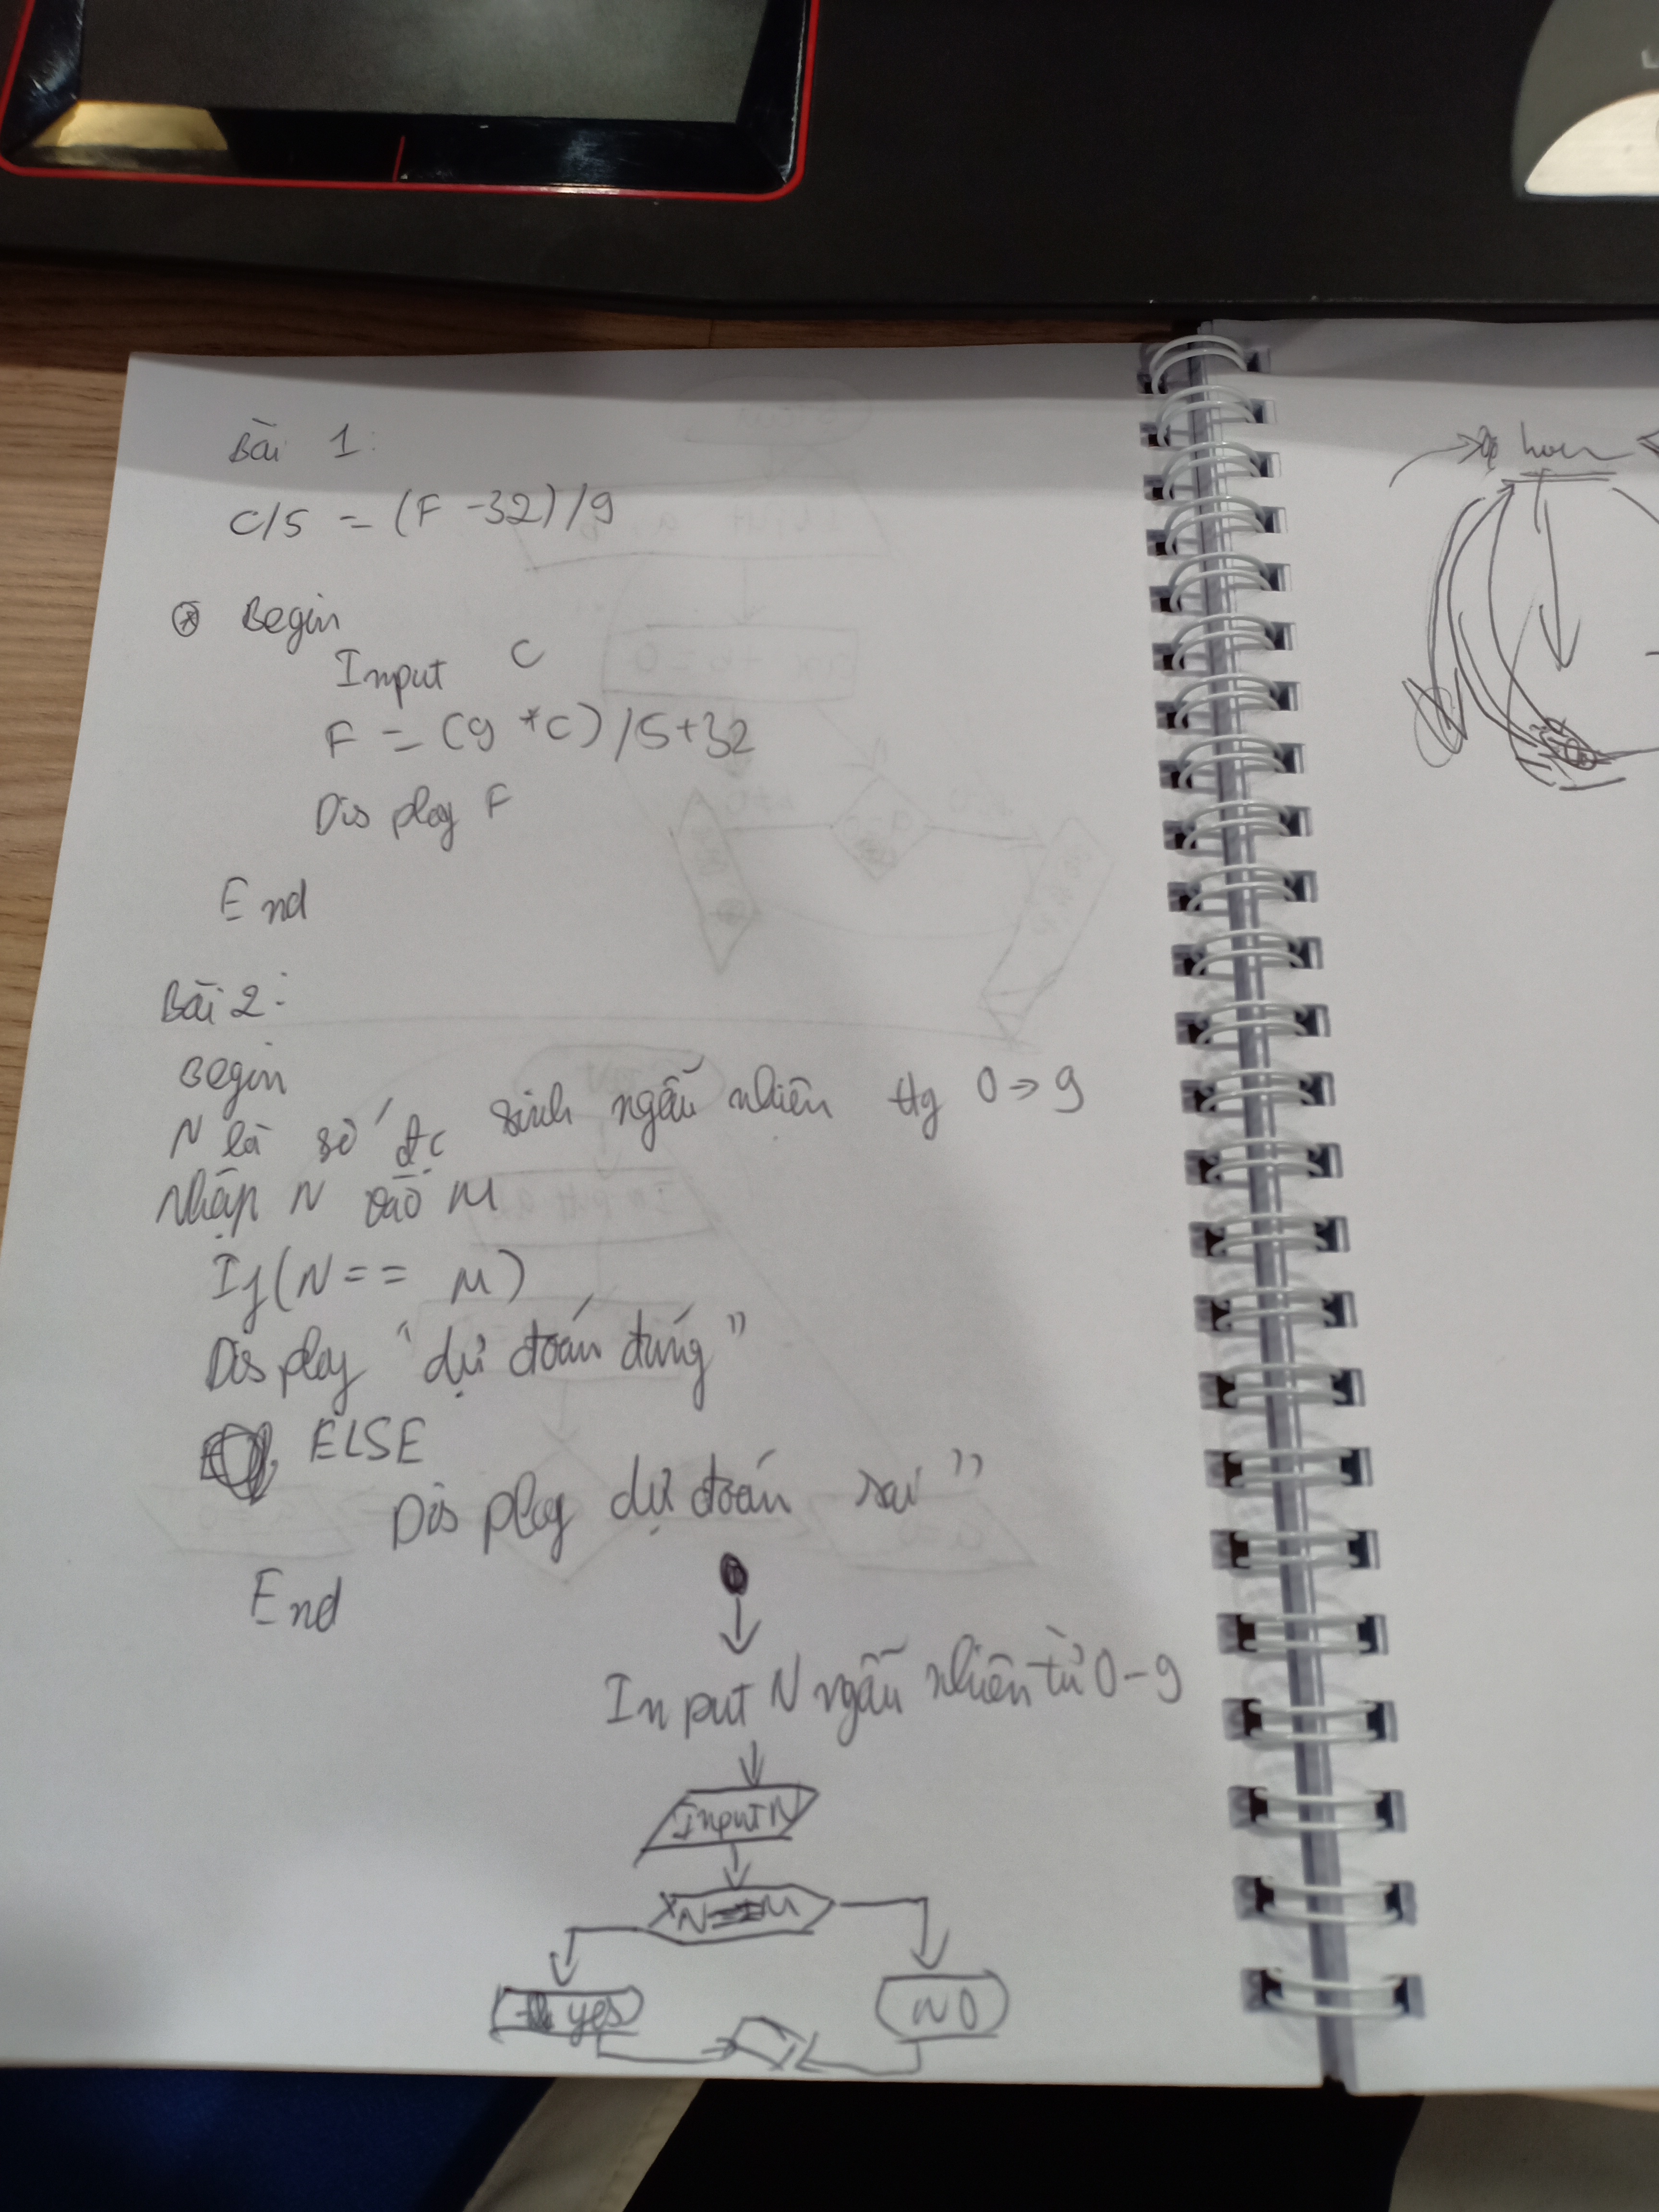 Bài 1:
C/5 = (F - 32) / 9
Begin
Input C
F = (9 * C) / 5 + 32
Display F
End
Bài 2:
Begin
N là số đc sinh ngẫu nhiên tg 0 → 9
Nhập N vào M
If (N == M)
Display "dự đoán đúng"
ELSE
Display dự đoán sai"
End
Input N ngẫu nhiên từ 0 - 9
Input N
N == M
yes
NO